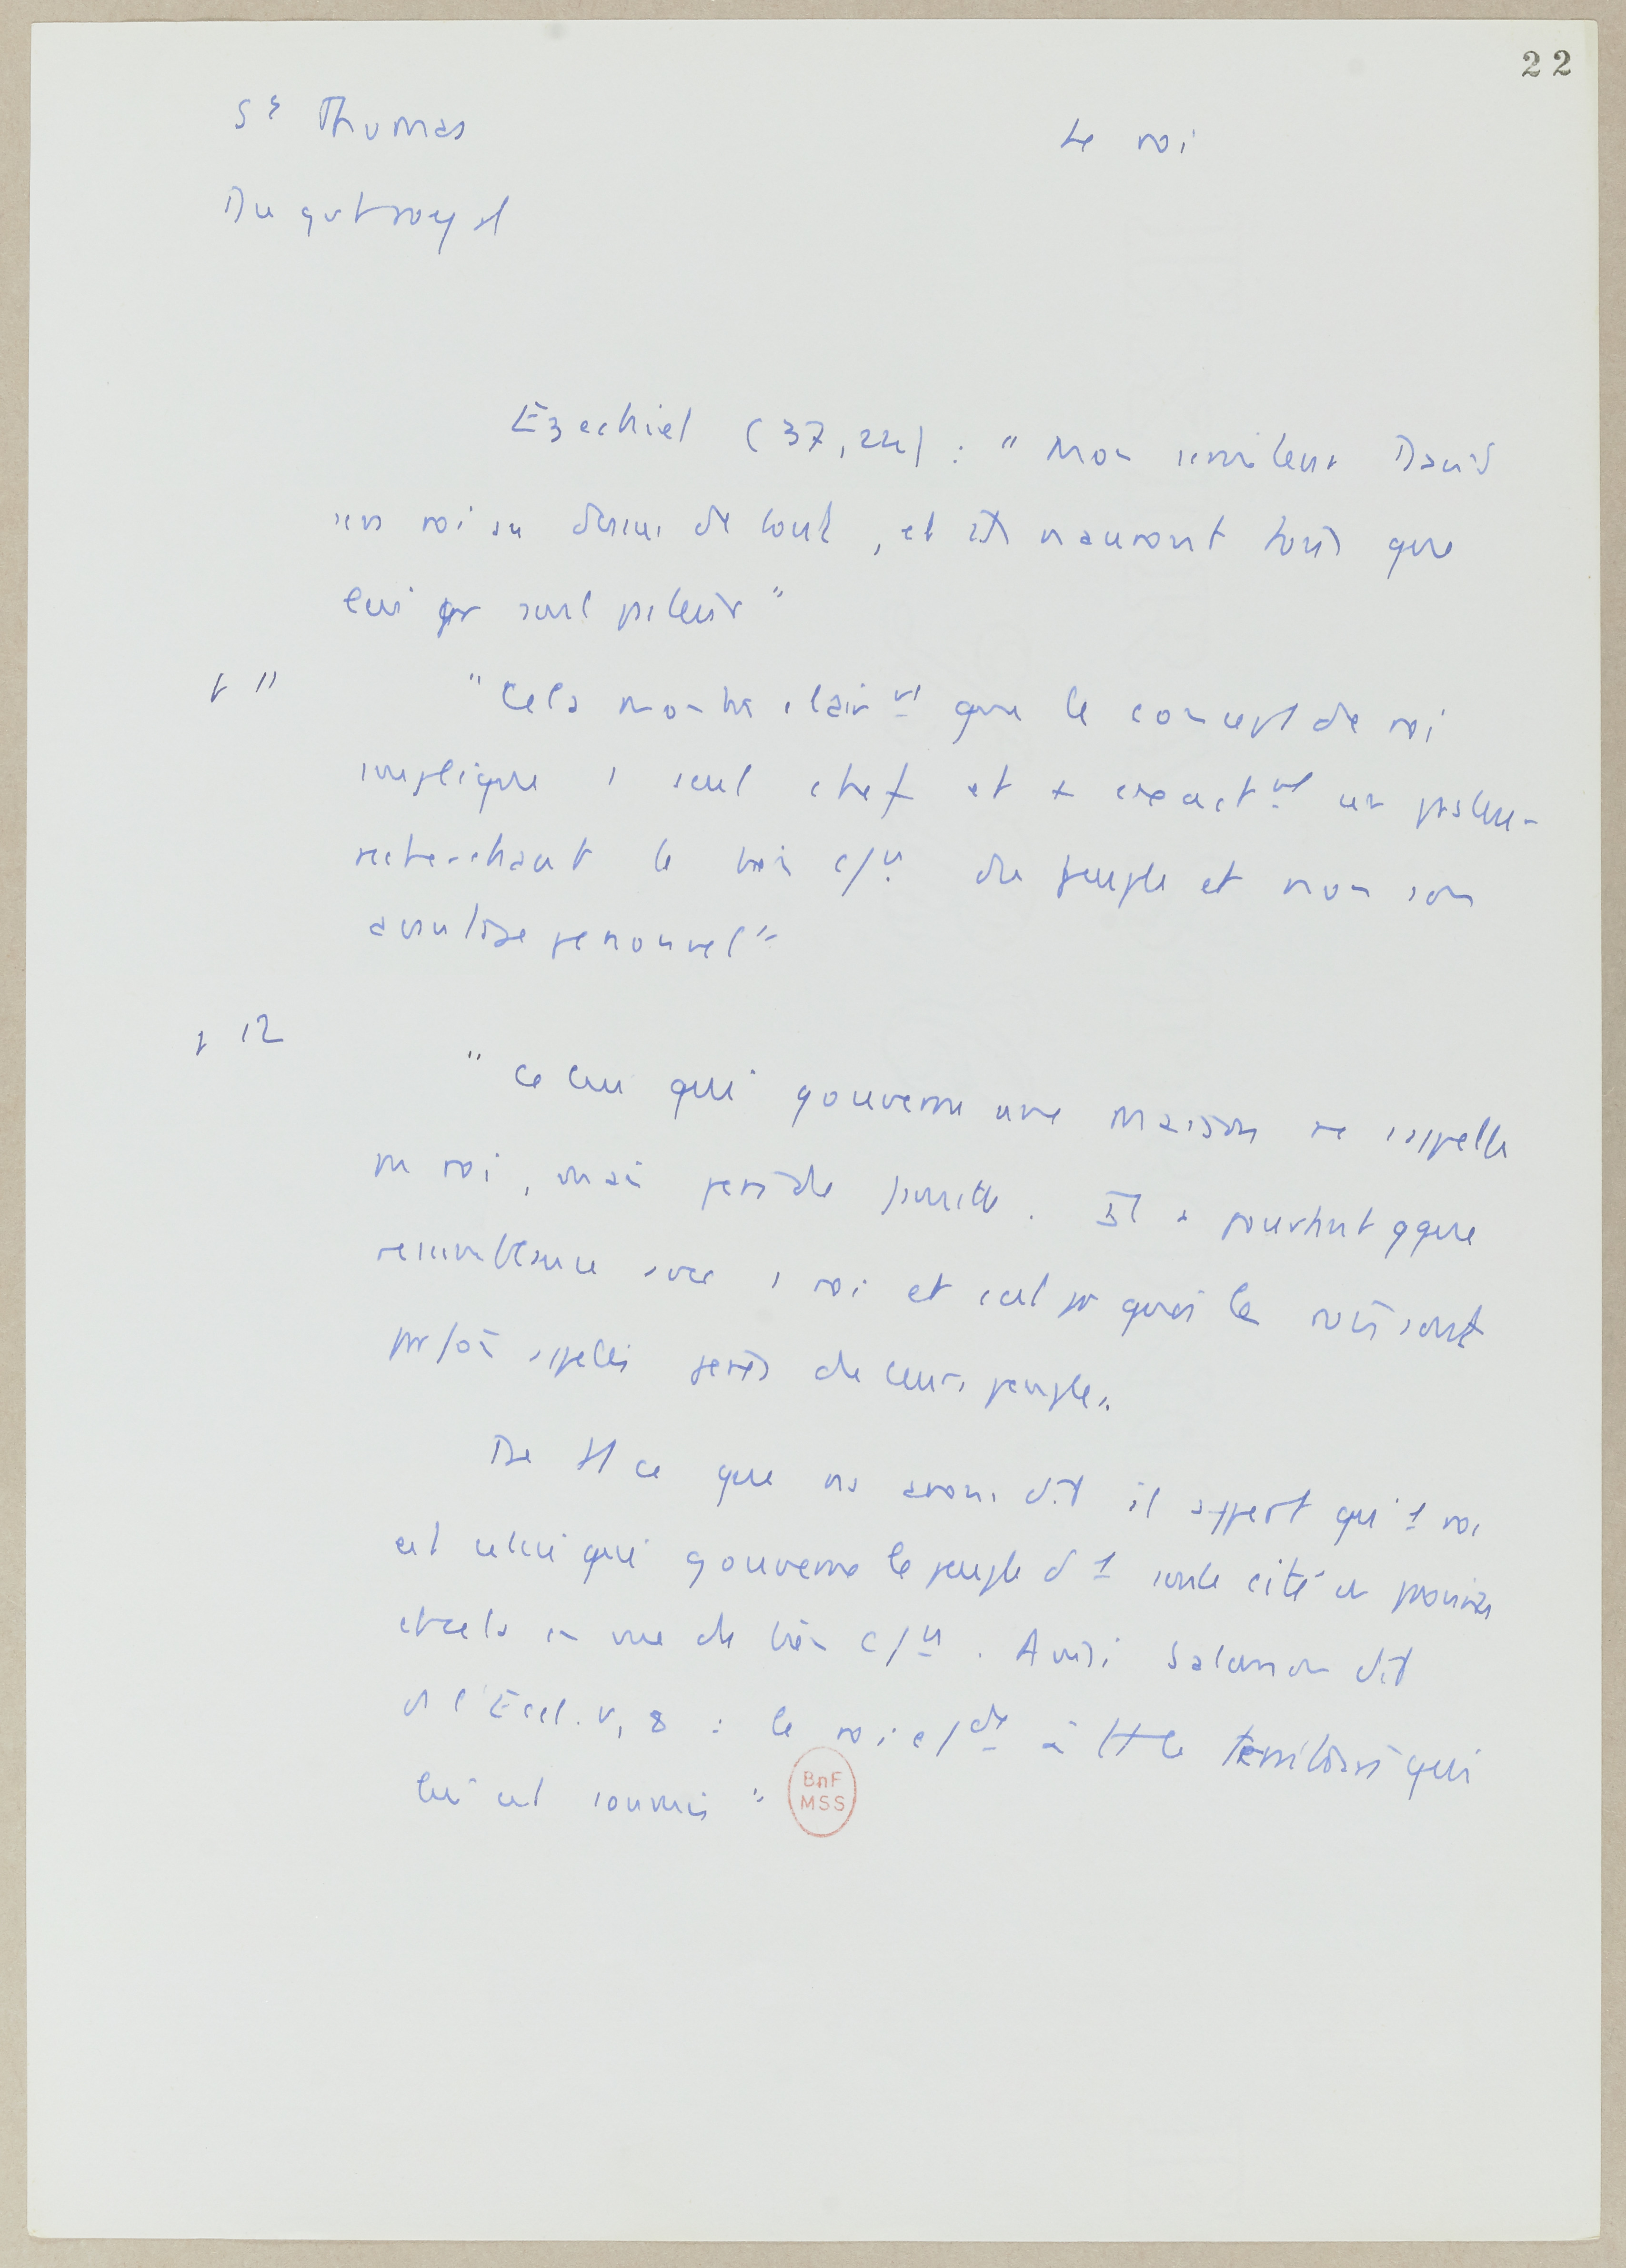 22
St Thomas
Le roi
Du gvt royal
Ezechiel (37, 24) : " Mon serviteur David
sera roi au dessus de tous, et ils n'auront tous que
lui pr seul pasteur "
p 11
" Cela montre clairmt que le concept de roi
implique 1 seul chef et + exactmt un pasteur
recherchant le bien c/n du peuple et non son
avantage personnel "
p 12
" Celui qui gouverne une maison ne s'appelle
pas roi, mais père de famille. Il a pourtant qque
ressemblance avec 1 roi et c'est pr quoi les rois sont
parfois appelés pères de leurs peuples.
De tt ce que ns avons dit il appert qu'1 roi
est celui qui gouverne le peuple d'1 seule cité et province
et cela en vue de bien c/n. Aussi Salomon dit
ds l'Eccl. V, 8 : le roi c/de à tt le territoire qui
lui est soumis "
BnF
MSS